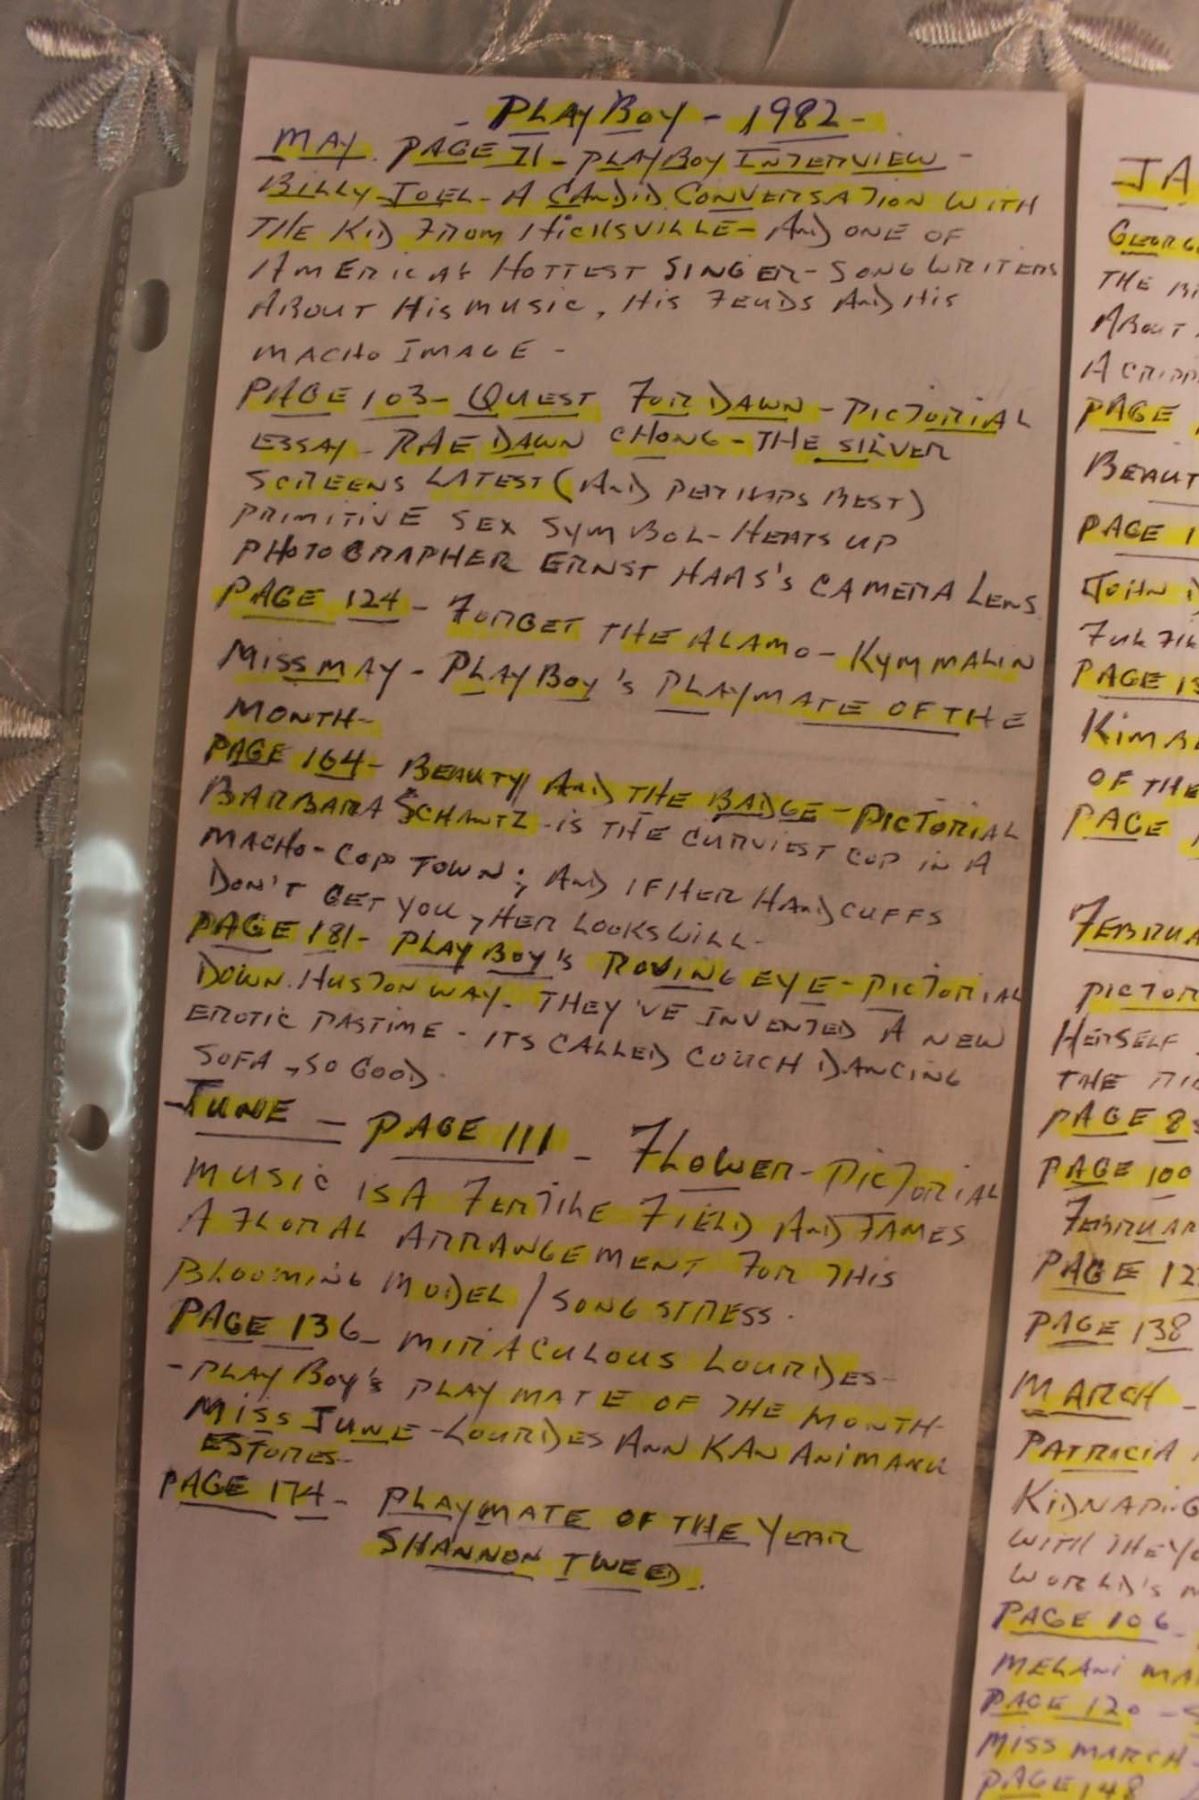 - PLAYBOY - 1982 -
MAY. PAGE 71 - PLAYBOY INTERVIEW -
BILLY JOEL - A CANDID CONVERSATION WITH
THE KID FROM HICKSVILLE - AND ONE OF
AMERICA'S HOTTEST SINGER - SONGWRITERS
ABOUT HIS MUSIC, HIS FEUDS AND HIS
MACHO IMAGE -
PAGE 103 - QUEST FOR DAWN - PICTORIAL
ESSAY - RAE DAWN CHONG - THE SILVER
SCREENS LATEST (AND PERHAPS BEST)
PRIMITIVE SEX SYMBOL - HEATS UP
PHOTOGRAPHER ERNST HAAS'S CAMERA LENS
PAGE 124 - FORGET THE ALAMO - KYM MALIN
MISS MAY - PLAYBOY'S PLAYMATE OF THE
MONTH -
PAGE 164 - BEAUTY AND THE BADGE - PICTORIAL
BARBARA SCHANTZ - IS THE CURVIEST COP IN A
MACHO - COP TOWN; AND IF HER HANDCUFFS
DON'T GET YOU, HER LOOKS WILL -
PAGE 181 - PLAYBOY'S ROVING EYE - PICTORIAL
DOWN HUSTON WAY - THEY'VE INVENTED A NEW
EROTIC PASTIME - ITS CALLED COUCH DANCING
SOFA, SO GOOD.
JUNE - PAGE 111 - FLOWER - PICTORIAL
MUSIC IS A FERTILE FIELD AND JAMES
A FLORAL ARRANGEMENT FOR THIS
BLOOMING MODEL / SONGSTRESS.
PAGE 136 - MIRACULOUS LOURDES -
- PLAYBOY'S PLAYMATE OF THE MONTH -
MISS JUNE - LOURDES ANN KANANIMANU
ESTORES -
PAGE 174 - PLAYMATE OF THE YEAR
SHANNON TWEED.
JA
GEORG
THE
ABOUT
A CRIPP
PAGE
BEAUT
PAGE 1
JOHN
FULFIL
PAGE 13
KIMB
OF THE
PAGE
FEBRUA
PICTOR
HERSELF
THE
PAGE 8
PAGE 100
FEBRUAR
PAGE 12
PAGE 138
MARCH -
PATRICIA
KIDNAP
WITH THE YO
WORLD'S
PAGE 106 -
MELANI MA
PAGE 120 - S
MISS MARCH -
PAGE 148